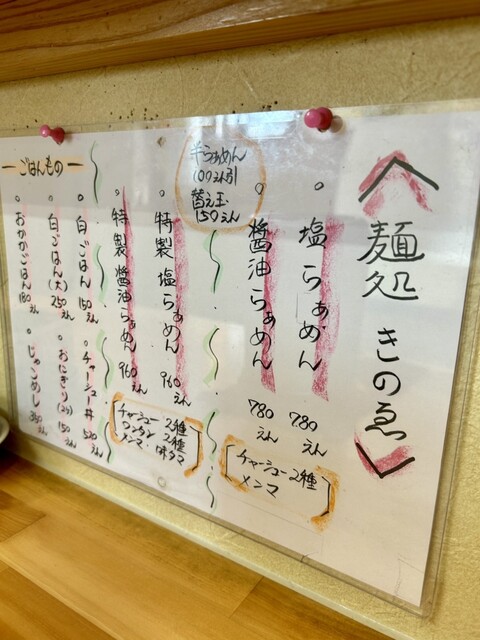 麺処 きのゑ
塩らぁめん 780えん
醤油らぁめん 780えん
チャーシュー2種
メンマ
半らぁめん
100えん引
替え玉
150えん
特製塩らぁめん 960えん
特製醤油らぁめん 960えん
チャーシュー2種
ワンタン2種
メンマ・味タマ
ごはんもの
白ごはん 150えん
白ごはん(大) 250えん
おかかごはん 180えん
チャーシュー丼
おにぎり(2コ) 150えん
じゃこめし